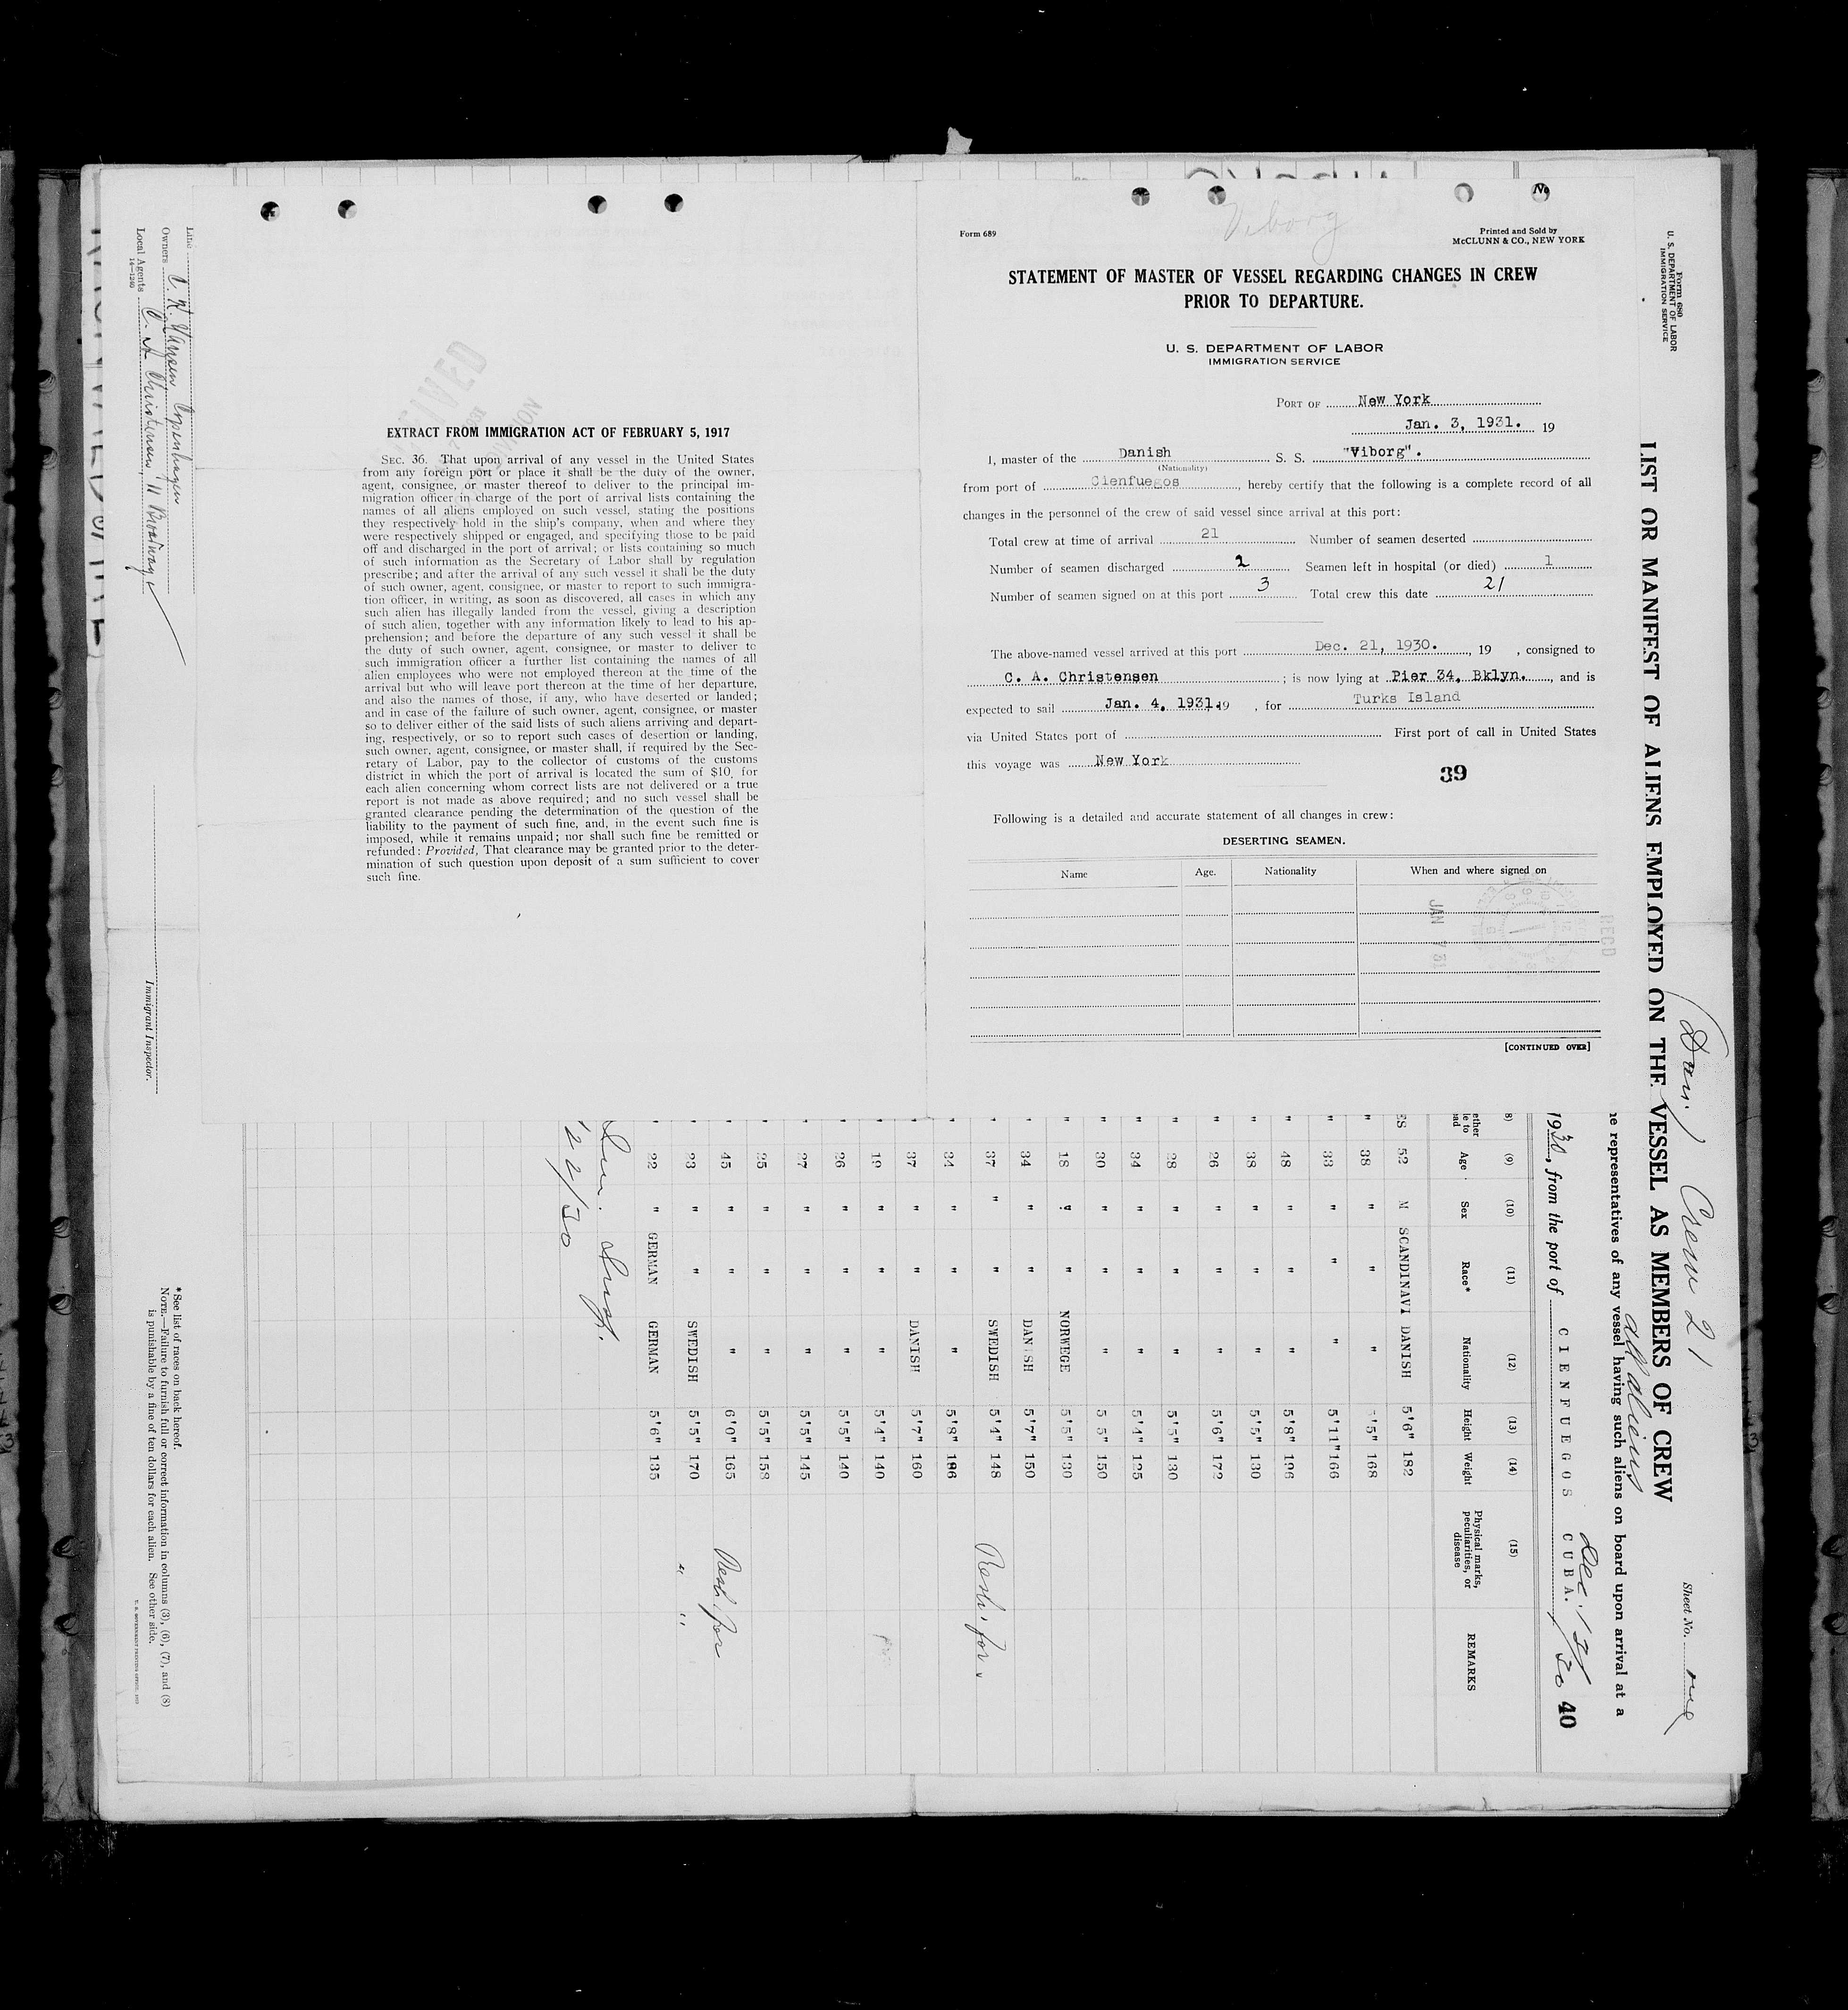 Line
Owners C. K. Hansen Copenhagen
Local Agents C. A. Christensen 11 Broadway
14-1240
Immigrant Inspector.
EXTRACT FROM IMMIGRATION ACT OF FEBRUARY 5, 1917
SEC. 36. That upon arrival of any vessel in the United States
from any foreign port or place it shall be the duty of the owner,
agent, consignee, or master thereof to deliver to the principal im-
migration officer in charge of the port of arrival lists containing the
names of all aliens employed on such vessel, stating the positions
they respectively hold in the ship's company, when and where they
were respectively shipped or engaged, and specifying those to be paid
off and discharged in the port of arrival; or lists containing so much
of such information as the Secretary of Labor shall by regulation
prescribe; and after the arrival of any such vessel it shall be the duty
of such owner, agent, consignee, or master to report to such immigra-
tion officer, in writing, as soon as discovered, all cases in which any
such alien has illegally landed from the vessel, giving a description
of such alien, together with any information likely to lead to his ap-
prehension; and before the departure of any such vessel it shall be
the duty of such owner, agent, consignee, or master to deliver to
such immigration officer a further list containing the names of all
alien employees who were not employed thereon at the time of the
arrival but who will leave port thereon at the time of her departure,
and also the names of those, if any, who have deserted or landed;
and in case of the failure of such owner, agent, consignee, or master
so to deliver either of the said lists of such aliens arriving and depart-
ing, respectively, or so to report such cases of desertion or landing,
such owner, agent, consignee, or master shall, if required by the Sec-
retary of Labor, pay to the collector of customs of the customs
district in which the port of arrival is located the sum of $10 for
each alien concerning whom correct lists are not delivered or a true
report is not made as above required; and no such vessel shall be
granted clearance pending the determination of the question of the
liability to the payment of such fine, and, in the event such fine is
imposed, while it remains unpaid; nor shall such fine be remitted or
refunded: Provided, That clearance may be granted prior to the deter-
mination of such question upon deposit of a sum sufficient to cover
such fine.
Viborg
Form 689
Printed and Sold by
McCLUNN & CO., NEW YORK
STATEMENT OF MASTER OF VESSEL REGARDING CHANGES IN CREW
PRIOR TO DEPARTURE.
U. S. DEPARTMENT OF LABOR
IMMIGRATION SERVICE
PORT OF New York
Jan. 3, 1931. 19
I, master of the Danish S. S. "Viborg".
(Nationality)
from port of Cienfuegos, hereby certify that the following is a complete record of all
changes in the personnel of the crew of said vessel since arrival at this port:
Total crew at time of arrival 21 Number of seamen deserted
Number of seamen discharged 2 Seamen left in hospital (or died) 1
Number of seamen signed on at this port 3 Total crew this date 21
The above-named vessel arrived at this port Dec. 21, 1930., 19 , consigned to
C. A. Christensen ; is now lying at Pier 34, Bklyn., and is
expected to sail Jan. 4, 1931. 19 , for Turks Island
via United States port of First port of call in United States
this voyage was New York
39
Following is a detailed and accurate statement of all changes in crew:
DESERTING SEAMEN.
Name Age. Nationality When and where signed on
JAN 7 31
REC'D
[CONTINUED OVER]
Form 680
U. S. DEPARTMENT OF LABOR
IMMIGRATION SERVICE
Dan. Crew 21
all aliens
Sheet No. one
LIST OR MANIFEST OF ALIENS EMPLOYED ON THE VESSEL AS MEMBERS OF CREW
representatives of any vessel having such aliens on board upon arrival at a
1930, from the port of CIENFUEGOS CUBA. 40
(9) (10) (11) (12) (13) (14) (15)
Age Sex Race* Nationality Height Weight Physical marks, peculiarities, or disease REMARKS
52 M SCANDINAVI DANISH 5'6" 182
" 38 " " " '5" 168
" 33 " " " 5'11" 166
" 48 " " " 5'8" 196
" 38 " " " 5'5" 130
" 26 " " " 5'6" 172
" 28 " " " 5'5" 130
" 34 " " " 5'4" 125
" 30 " " " 5 5" 150
" 18 " " NORWEGE 5'5" 130
" 34 " " DANISH 5'7" 150
" 37 " " SWEDISH 5'4" 148
" 24 " " " 5'8" 186
" 37 " " DANISH 5'7" 160
" 19 " " " 5'4" 140
" 26 " " " 5'5" 140
" 27 " " " 5'5" 145
" 25 " " " 5'5" 158
" 45 " " " 6'0" 165
" 23 " " SWEDISH 5'5" 170 " "
" 22 " GERMAN GERMAN 5'6" 135
*See list of races on back hereof.
NOTE.—Failure to furnish full or correct information in columns (3), (6), (7), and (8)
is punishable by a fine of ten dollars for each alien. See other side.